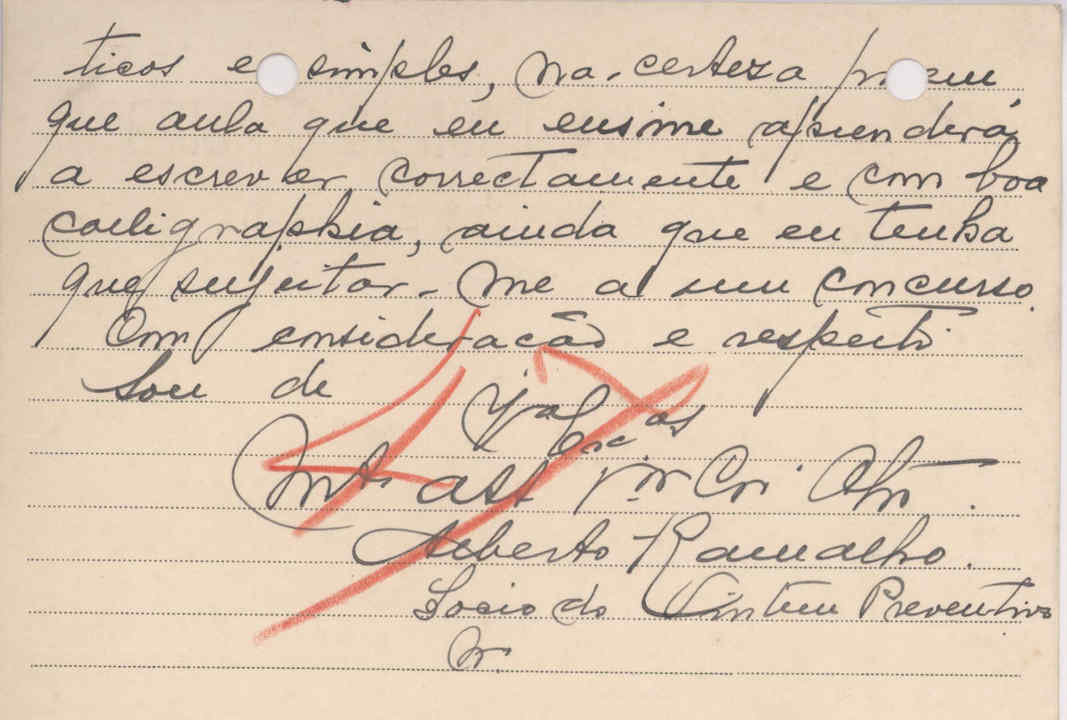 ticos e simples, na certeza p em
que aula que eu ensine aprenderá
a escrever correctamente e com boa
caligraphia, ainda que eu tenha
que sujeitar-me a um concurso.
Com consideração e respeito
Sou de
Att
Alberto Ramalho.
Socio do Preventivo
N.
47